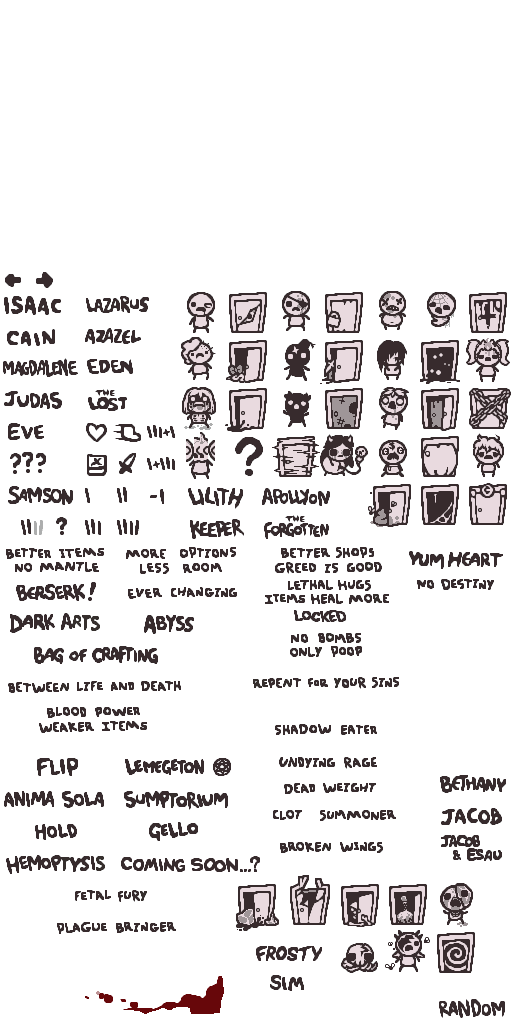 ISAAC LAZARUS
CAIN AZAZEL
MAGDALENE EDEN
JUDAS THE LOST
EVE
???
?
SAMSON I II -I LILITH APOLLYON
? KEEPER THE FORGOTTEN
BETTER ITEMS
NO MANTLE
MORE OPTIONS
LESS ROOM
BETTER SHOPS
GREED IS GOOD
YUM HEART
BERSERK!
EVER CHANGING
LETHAL HUGS
ITEMS HEAL MORE
NO DESTINY
DARK ARTS
ABYSS
LOCKED
NO BOMBS
ONLY POOP
BAG OF CRAFTING
BETWEEN LIFE AND DEATH
REPENT FOR YOUR SINS
BLOOD POWER
WEAKER ITEMS
SHADOW EATER
FLIP
LEMEGETON
UNDYING RAGE
DEAD WEIGHT
BETHANY
ANIMA SOLA
SUMPTORIUM
CLOT SUMMONER
JACOB
HOLD
GELLO
BROKEN WINGS
JACOB
& ESAU
HEMOPTYSIS
COMING SOON...?
FETAL FURY
PLAGUE BRINGER
FROSTY
SIM
RANDOM